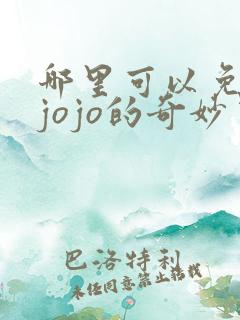 哪里可以免
jojo的奇妙
巴洛特利
未经同意禁止搭载